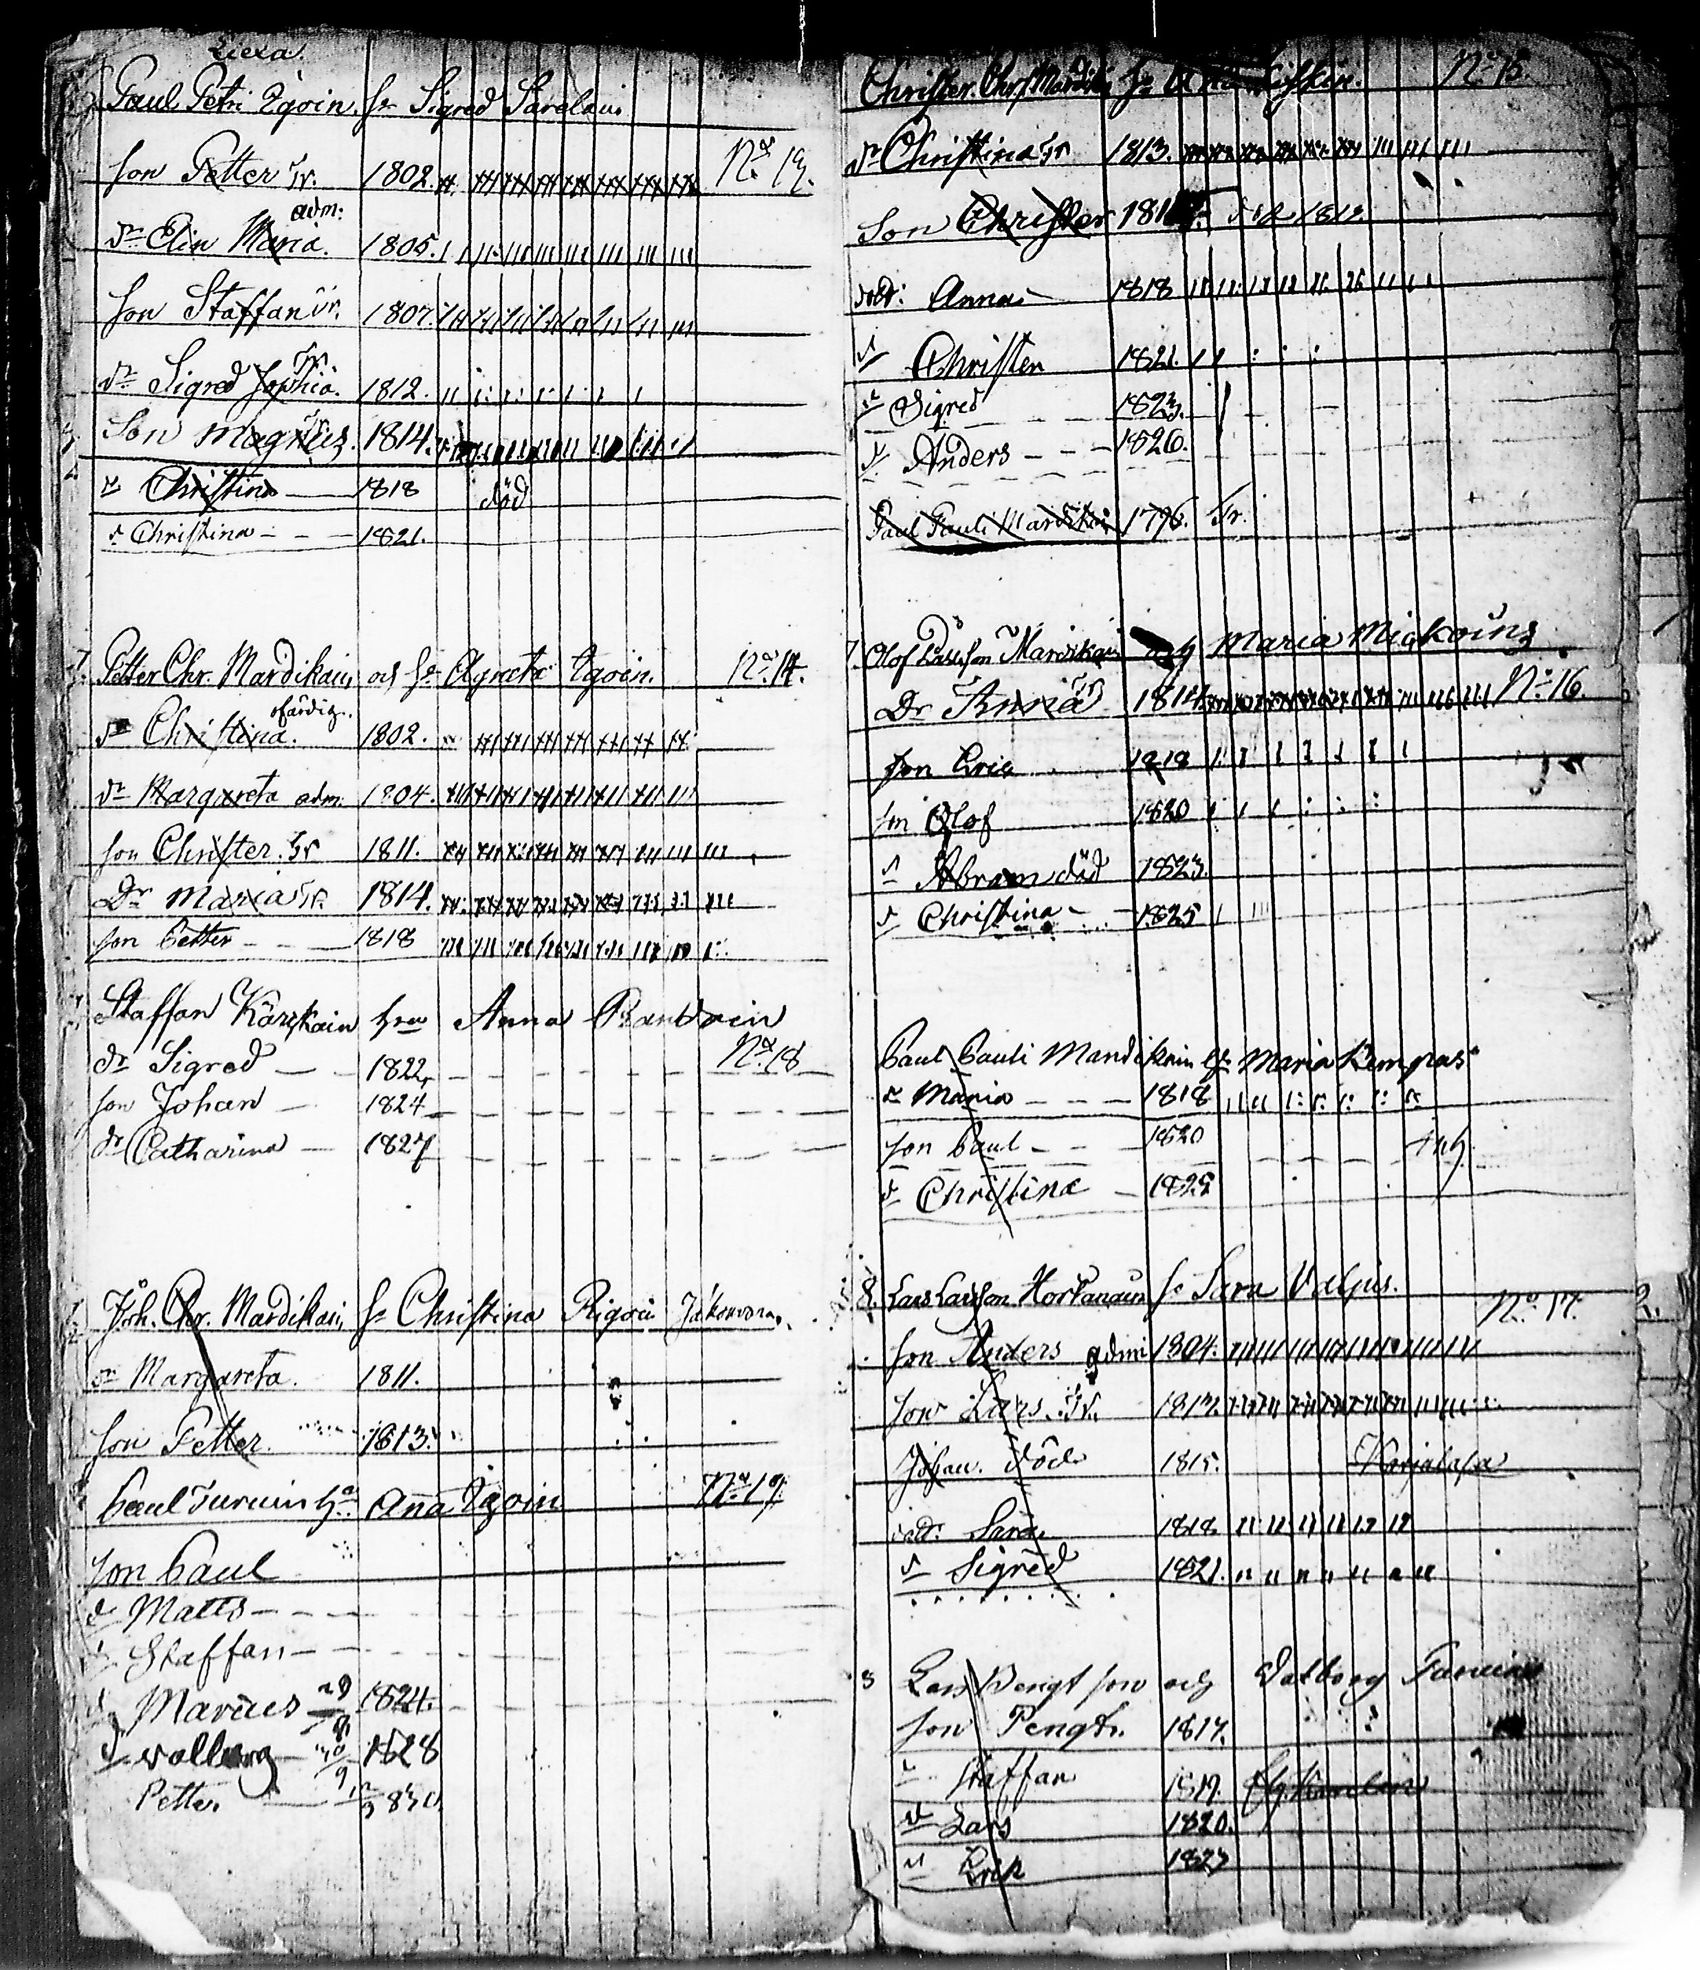 Liexa.
Paul Petri Egoin. hr Sigred Sarelain
Son Petter Tr. 1802. No. 13.
dr Elin Maria. adm: 1805.
Son Staffan Tr. 1807.
dr Sigred Sophia. Tr. 1812.
Son Magnus. Tr. 1814.
dr Christina 1818 död
dr Christina 1821.
7. Petter Chr. Mardikain, och hr Agneta Egoin. No. 14.
dr Christina. ofärdig. 1802.
dr Margareta adm. 1804.
Son Christer. Tr 1811.
Dr Maria Tr. 1814.
Son Petter 1818
Staffan Kärckain hru Anna
No. 18
dr Sigred 1822
Son Johan 1824
dr Catharina 1827
Joh. Chr. Mardikain, hr Christina Rigoin
dr Margareta. 1811.
Son Petter 1813.
Paul Turuin hr Anna Egoin No. 19.
Son Paul
Matts
Staffan
Marcus 1824.
Petter
Christer. Chr. Mardik. hr No. 15.
dr Christina Tr 1813.
Son Christer
dotr: Anna 1818
Christer 1821.
Sigred 1823.
Anders 1826.
Paul Pauli Mardikain 1796. Tr.
7. Olof Larsson Mardikain och Maria Mickoins
Dr Anna Tr 1814 No. 16.
Son Eric 1818
Son Olof 1820
Abram död 1823.
dr Christina 1825
Paul Pauli Mardikain hr Maria Kempas
dr Maria 1818
Son Paul 1820
dr Christina
8. Lars Larsson Hortanain hr Sara Valpus.
No. 17.
Son Anders admi 1804.
Son Lars. Tr.
Johan. död 1815. Karjalasa
dotr: Sara 1818
Sigred 1821.
8 Lars Bengtson och Valborg Turuin
Son Pengt. 1817.
Staffan 1819.
Lars 1820.
Erik 1823